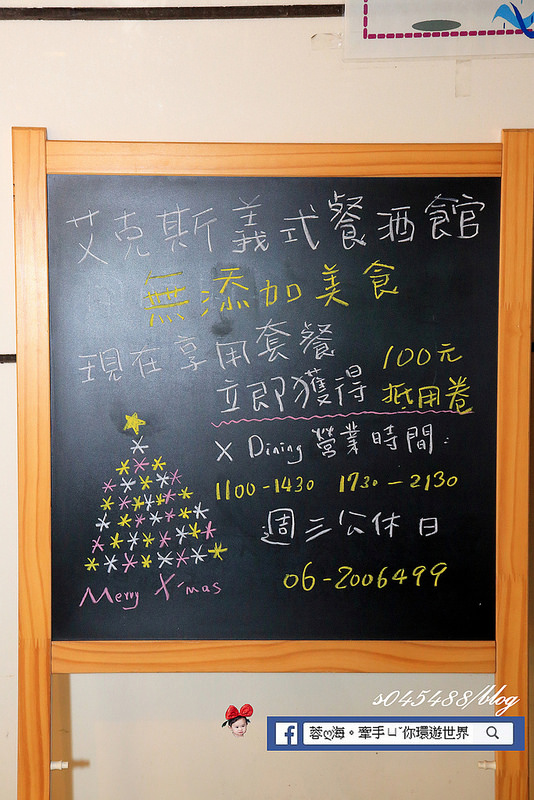 艾克斯義式餐酒館
無添加美食
現在享用套餐
立即獲得 100元抵用卷
X Dining 營業時間:
1100-1430 1730-2130
週三公休日
06-2006499
Merry X'mas
s045488/blog
蓉ღ海。牽手ㄩˇ你環遊世界